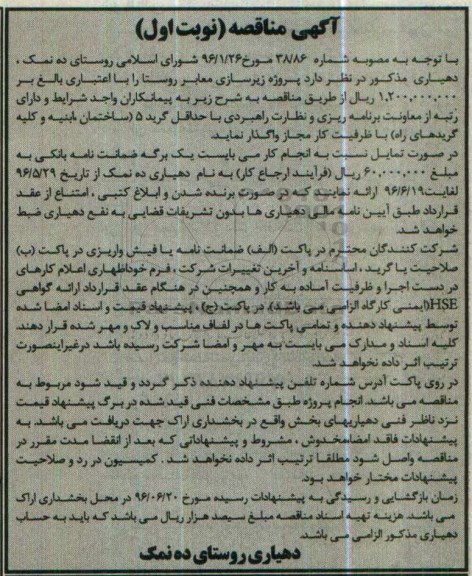 آگهی مناقصه (نوبت اول)
با توجه به مصوبه شماره ۳۸/۸۶ مورخ ۹۶/۱/۲۶ شورای اسلامی روستای ده نمک ،
دهیاری مذکور در نظر دارد پروژه زیرسازی معابر روستا را با اعتباری بالغ بر
۱,۲۰۰,۰۰۰,۰۰۰ ریال از طریق مناقصه به شرح زیر به پیمانکاران واجد شرایط و دارای
رتبه از معاونت برنامه ریزی و نظارت راهبردی با حداقل گرید ۵ (ساختمان ،ابنیه و کلیه
گریدهای راه) با ظرفیت کار مجاز واگذار نماید.
در صورت تمایل نسبت به انجام کار می بایست یک برگه ضمانت نامه بانکی به
مبلغ ۶۰,۰۰۰,۰۰۰ ریال (فرآیند ارجاع کار) به نام دهیاری ده نمک از تاریخ ۹۶/۵/۲۹
لغایت ۹۶/۶/۱۹ ارائه نمایند که در صورت برنده شدن و ابلاغ کتبی ، امتناع از عقد
قرارداد طبق آیین نامه مالی دهیاری ها بدون تشریفات قضایی به نفع دهیاری ضبط
خواهد شد.
شرکت کنندگان محترم در پاکت (الف) ضمانت نامه یا فیش واریزی در پاکت (ب)
صلاحیت یا گرید ، اساسنامه و آخرین تغییرات شرکت ، فرم خوداظهاری اعلام کارهای
در دست اجرا و ظرفیت آماده به کار و همچنین در هنگام عقد قرارداد ارائه گواهی
HSE(ایمنی کارگاه الزامی می باشد). در پاکت (ج) ، پیشنهاد قیمت و اسناد امضا شده
توسط پیشنهاد دهنده و تمامی پاکت ها در لفاف مناسب و لاک و مهر شده قرار دهند.
کلیه اسناد و مدارک می بایست به مهر و امضا شرکت رسیده باشد درغیراینصورت
ترتیب اثر داده نخواهد شد.
در روی پاکت آدرس شماره تلفن پیشنهاد دهنده ذکر گردد و قید شود مربوط به
مناقصه می باشد. انجام پروژه طبق مشخصات فنی قید شده در برگ پیشنهاد قیمت
نزد ناظر فنی دهیاریهای بخش واقع در بخشداری اراک جهت دریافت می باشد. به
پیشنهادات فاقد امضا،مخدوش ، مشروط و پیشنهاداتی که بعد از انقضا مدت مقرر در
مناقصه واصل شود مطلقا ترتیب اثر داده نخواهد شد . کمیسیون در رد و صلاحیت
پیشنهادات مختار خواهد بود.
زمان بازگشایی و رسیدگی به پیشنهادات رسیده مورخ ۹۶/۰۶/۲۰ در محل بخشداری اراک
می باشد. هزینه تهیه اسناد مناقصه مبلغ سیصد هزار ریال می باشد که باید به حساب
دهیاری مذکور الزامی می باشد.
دهیاری روستای ده نمک